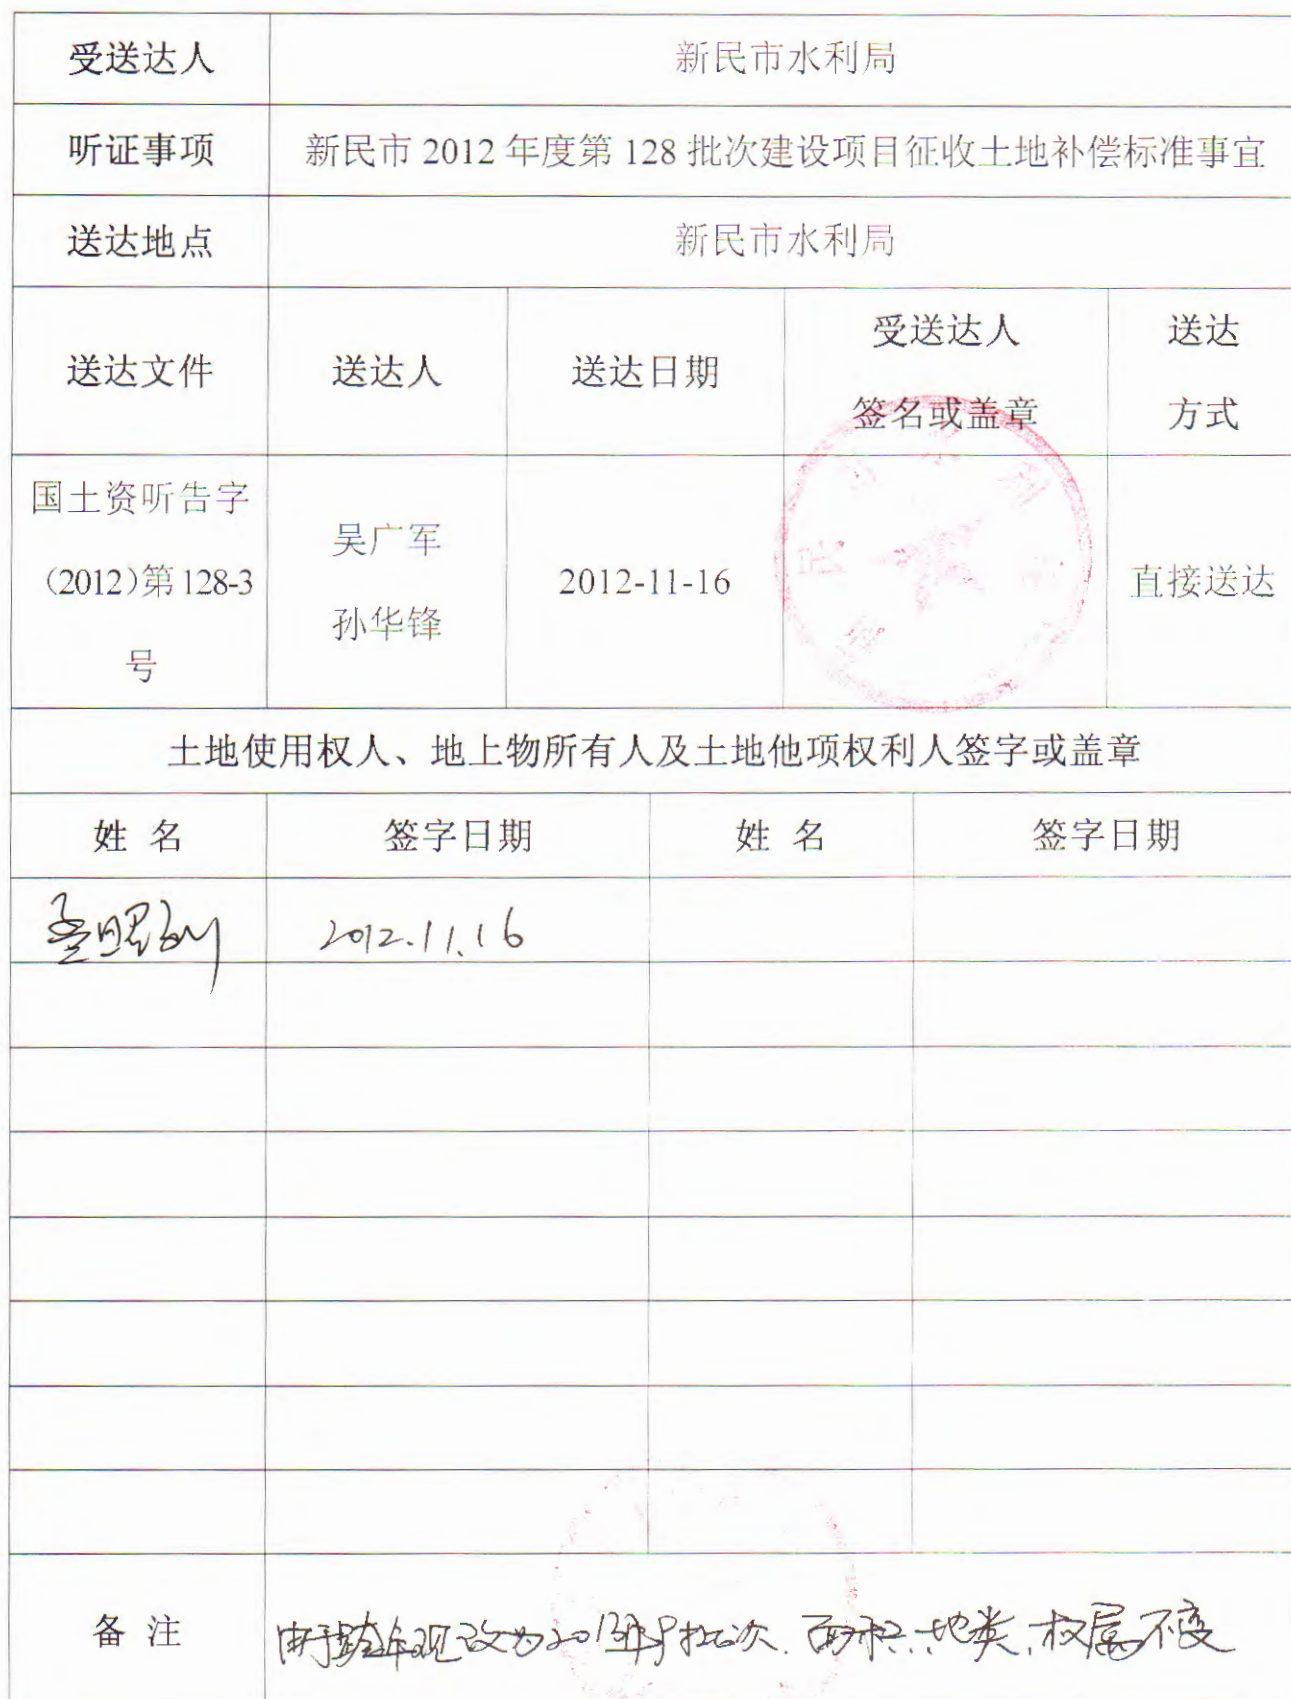 受送达人 新民市水利局
听证事项 新民市 2012 年度第 128 批次建设项目征收土地补偿标准事宜
送达地点 新民市水利局
送达文件 送达人 送达日期 受送达人 签名或盖章 送达 方式
国土资听告字
(2012)第 128-3
号
吴广军
孙华锋
2012-11-16
直接送达
土地使用权人、地上物所有人及土地他项权利人签字或盖章
姓 名 签字日期 姓 名 签字日期
2012.11.16
备 注 由于跨年现改为2013年 批次.面积.地类.权属不变